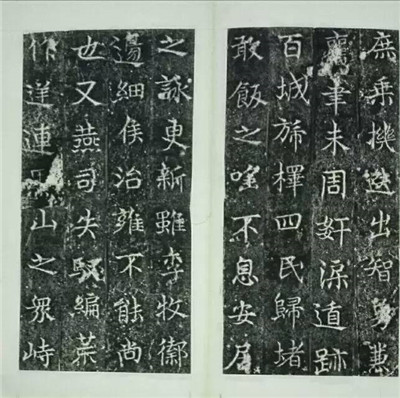 庶乘機迭出智勇兼
未周奸渠遁跡
百城旆檡四民歸堵
敢飯之唑不息安居
之詠更新雖李牧禦
邊細侯治雍不能尚
也又燕司失馭編葉
作逆連山之眾峙